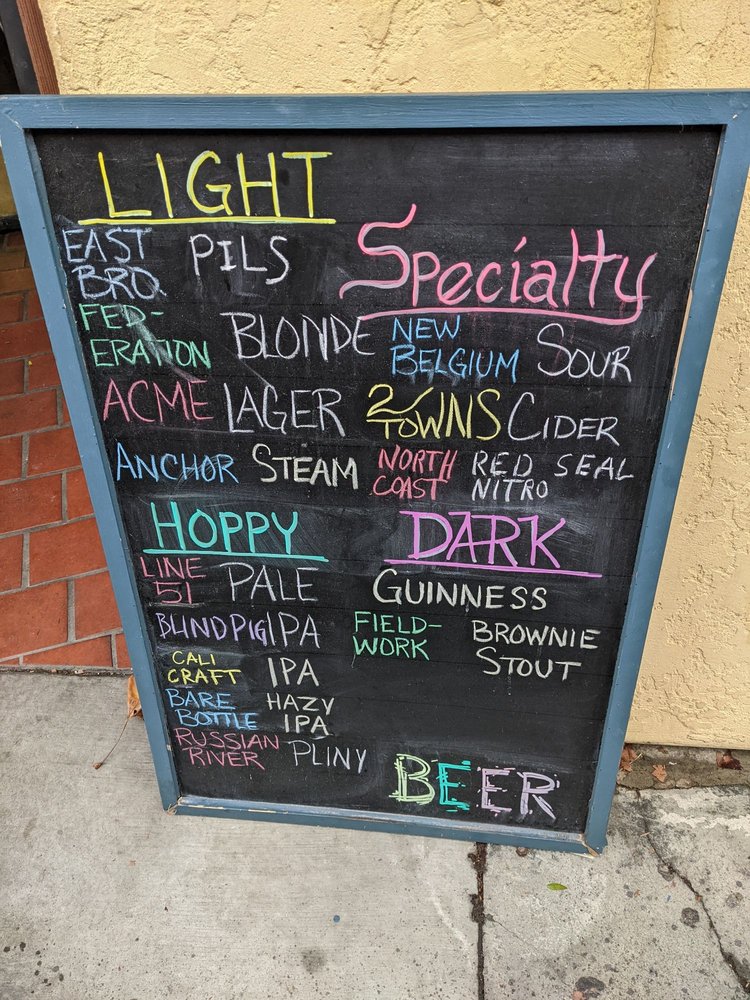 LIGHT
EAST BRO. PILS
FED-ERATION BLONDE
ACME LAGER
ANCHOR STEAM
HOPPY
LINE 51 PALE
BLIND PIG IPA
CALI CRAFT IPA
BARE BOTTLE HAZY IPA
RUSSIAN RIVER PLINY
Specialty
NEW BELGIUM SOUR
2 TOWNS CIDER
NORTH COAST RED SEAL NITRO
DARK
GUINNESS
FIELD-WORK BROWNIE STOUT
BEER